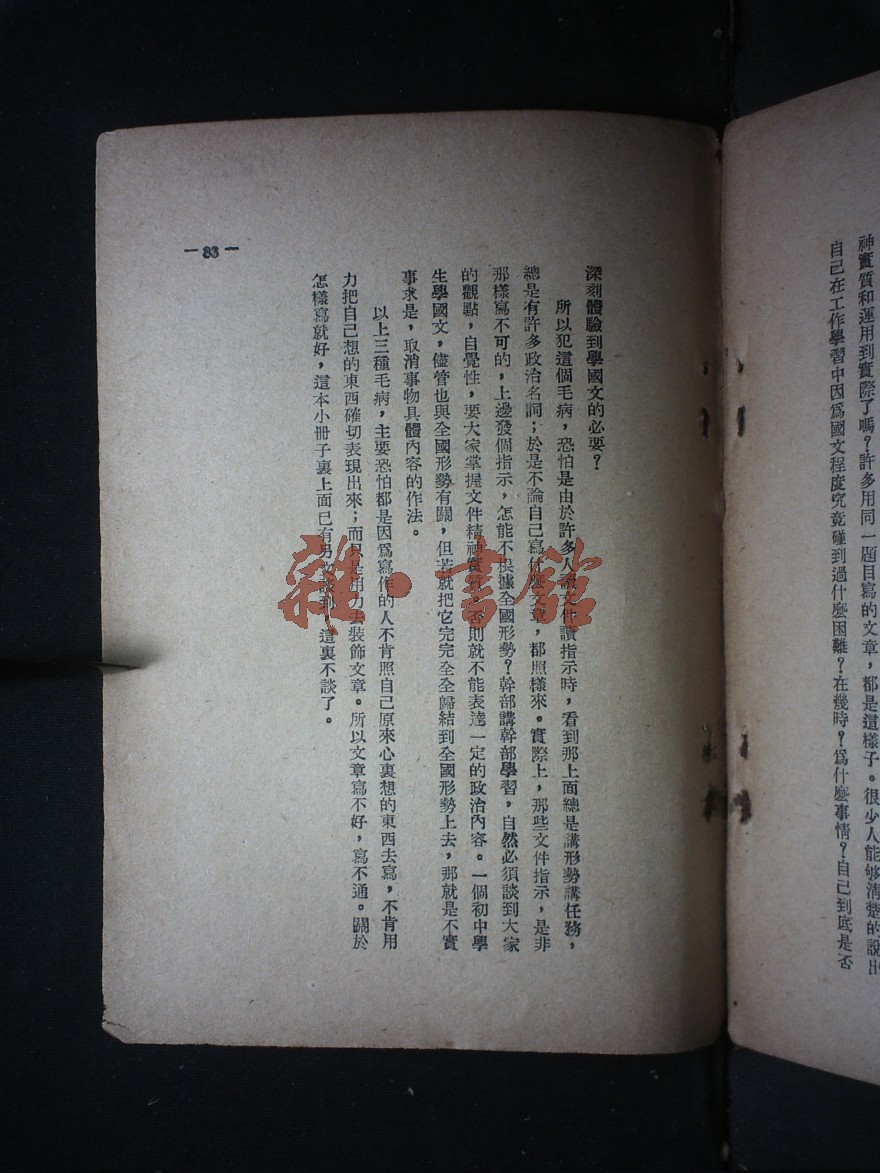 神實質和運用到實際了嗎？許多用同一題目寫的文章，都是這樣子。很少人能够清楚的說出
自己在工作學習中因爲國文程度究竟碰到過什麼困難？在幾時？爲什麼事情？自己到底是否
深刻體驗到學國文的必要？
所以犯這個毛病，恐怕是由於許多人讀文件讀指示時，看到那上面總是講形勢講任務，
總是有許多政治名詞；於是不論自己寫什麼文章，都照樣來。實際上，那些文件指示，是非
那樣寫不可的，上邊發個指示，怎能不根據全國形勢？幹部講幹部學習，自然必須談到大家
的觀點，自覺性，要大家掌握文件精神實質，否則就不能表達一定的政治內容。一個初中學
生學國文，儘管也與全國形勢有關，但若就把它完完全全歸結到全國形勢上去，那就是不實
事求是，取消事物具體內容的作法。
以上三種毛病，主要恐怕都是因爲寫作的人不肯照自己原來心裏想的東西去寫，不肯用
力把自己想的東西確切表現出來；而只是用力去裝飾文章。所以文章寫不好，寫不通。關於
怎樣寫就好，這本小冊子裏上面已有另文談到，這裏不談了。
— 83 —
雜·書館